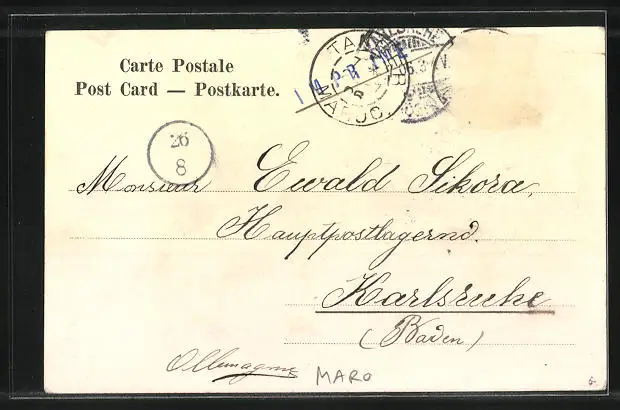 Carte Postale
Post Card — Postkarte.
TANGER
MAROC
26
8
Monsieur Ewald Sikora,
Hauptpostlagernd.
Karlsruhe
(Baden)
Allemagne
MARO